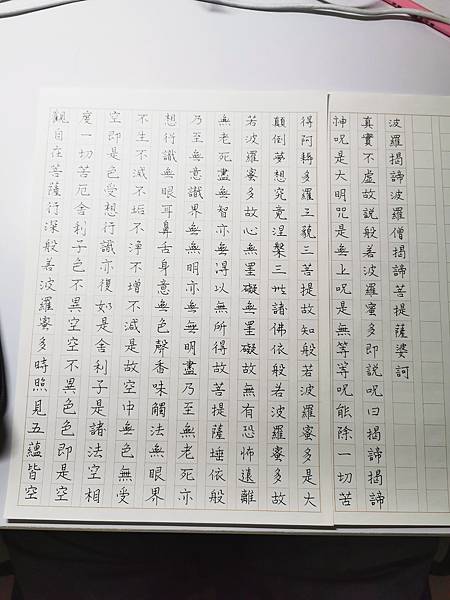 觀自在菩薩行深般若波羅蜜多時照見五蘊皆空
度一切苦厄舍利子色不異空空不異色色即是空
空即是色受想行識亦復如是舍利子是諸法空相
不生不滅不垢不淨不增不減是故空中無色無受
想行識無眼耳鼻舌身意無色聲香味觸法無眼界
乃至無意識界無無明亦無無明盡乃至無老死亦
無老死盡無智亦無得以無所得故菩提薩埵依般
若波羅蜜多故心無罣礙無罣礙故無有恐怖遠離
顛倒夢想究竟涅槃三世諸佛依般若波羅蜜多故
得阿耨多羅三藐三菩提故知般若波羅蜜多是大
神呪是大明咒是無上呪是無等等呪能除一切苦
真實不虛故說般若波羅蜜多即說呪曰揭諦揭諦
波羅揭諦波羅僧揭諦菩提薩婆訶